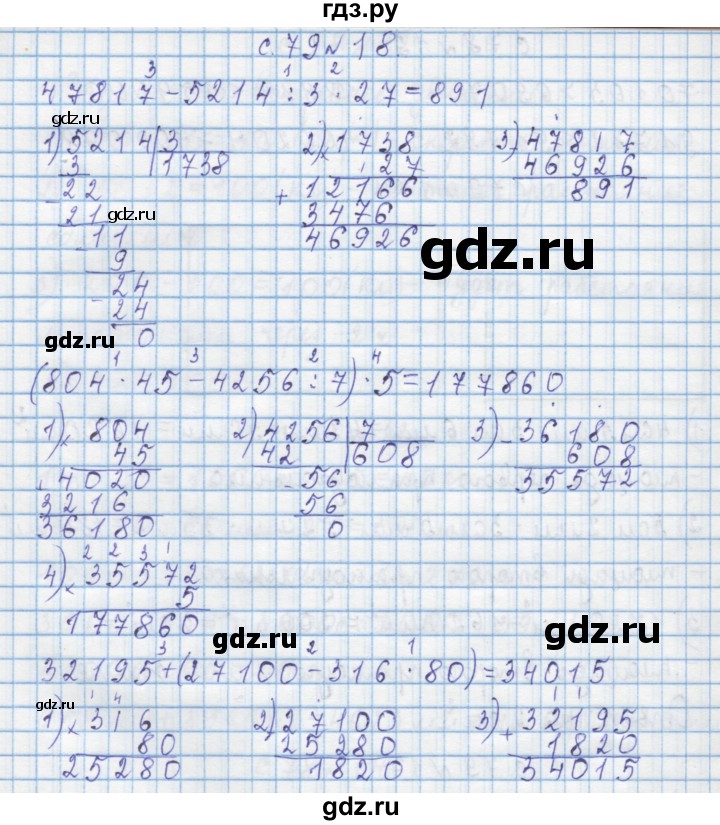 гдз.ру
с. 79 № 18.
3 1 2
47817 - 5214 : 3 · 27 = 891
gdz.ru
1) 5214 | 3 2) × 1738 3) - 47817
- 3 1738 27 46926
- 22 + 12166 891
21 gdz.ru 3476
- 11 46926
9 gdz.ru
- 24
24
gdz.ru 0
1 3 2 4
(804 · 45 - 4256 : 7) · 5 = 177860
1) × 804 2) - 4256 | 7 3) - 36180
45 42 608 608
+ 4020 - 56 35572
3216 56
36180 0
2 2 3 1
4) × 35572
5
177860
gdz.ru gdz.ru
3 2 1
32195 + (27100 - 316 · 80) = 34015
gdz.ru
1 4
1) × 316 2) - 27100 3) + 32195
80 25280 1820
25280 1820 34015
gdz.ru gdz.ru